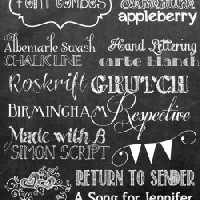 font combos
samantha
appleberry
Albemarle Swash
CHALKLINE
Hand Lettering
arte blanch
Roskrift
GRUTCH
BIRMINGHAM
Respective
Made with B
SIMON SCRIPT
RETURN TO SENDER
A Song for Jennifer